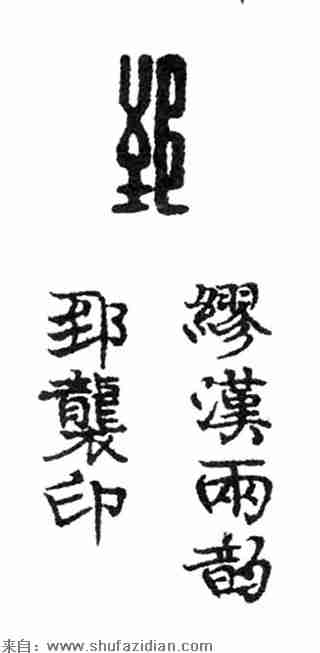 郅
繆漢兩韵
郅襲印
来自：www.shufazidian.com